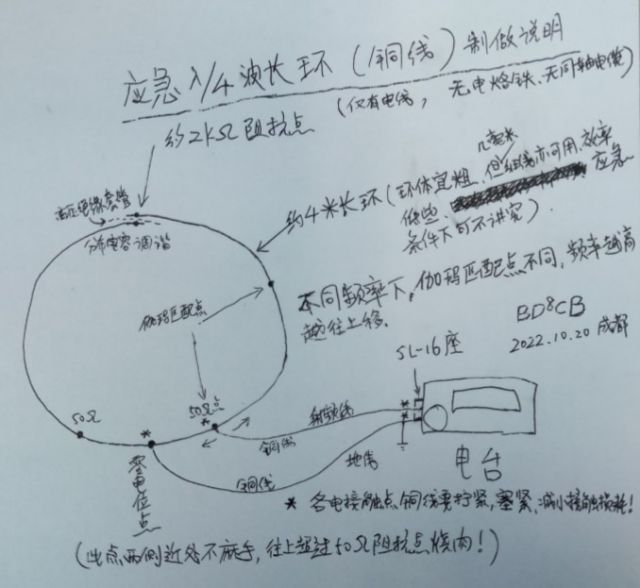 应急λ/4波长环(铜线)制做说明
(仅有电线,无电烙铁、无同轴电缆)
约2kΩ阻抗点
高压绝缘套管
分布电容调谐
约4米长环(环体宜粗,但细线亦可用,效率
几毫米
低些,应急
条件下可不讲究).
不同频率下,伽玛匹配点不同,频率越高
越往上移.
伽玛匹配点
BD8CB
2022.10.20 成都
SL-16座
50Ω
50Ω点
射频线
铜线
地线
铜线
电台
零电位点
* 各电接触点,铜线要拧紧,塞紧、减小接触损耗!
(此点两侧近处不麻手,往上超过50Ω阻抗点烧肉!)